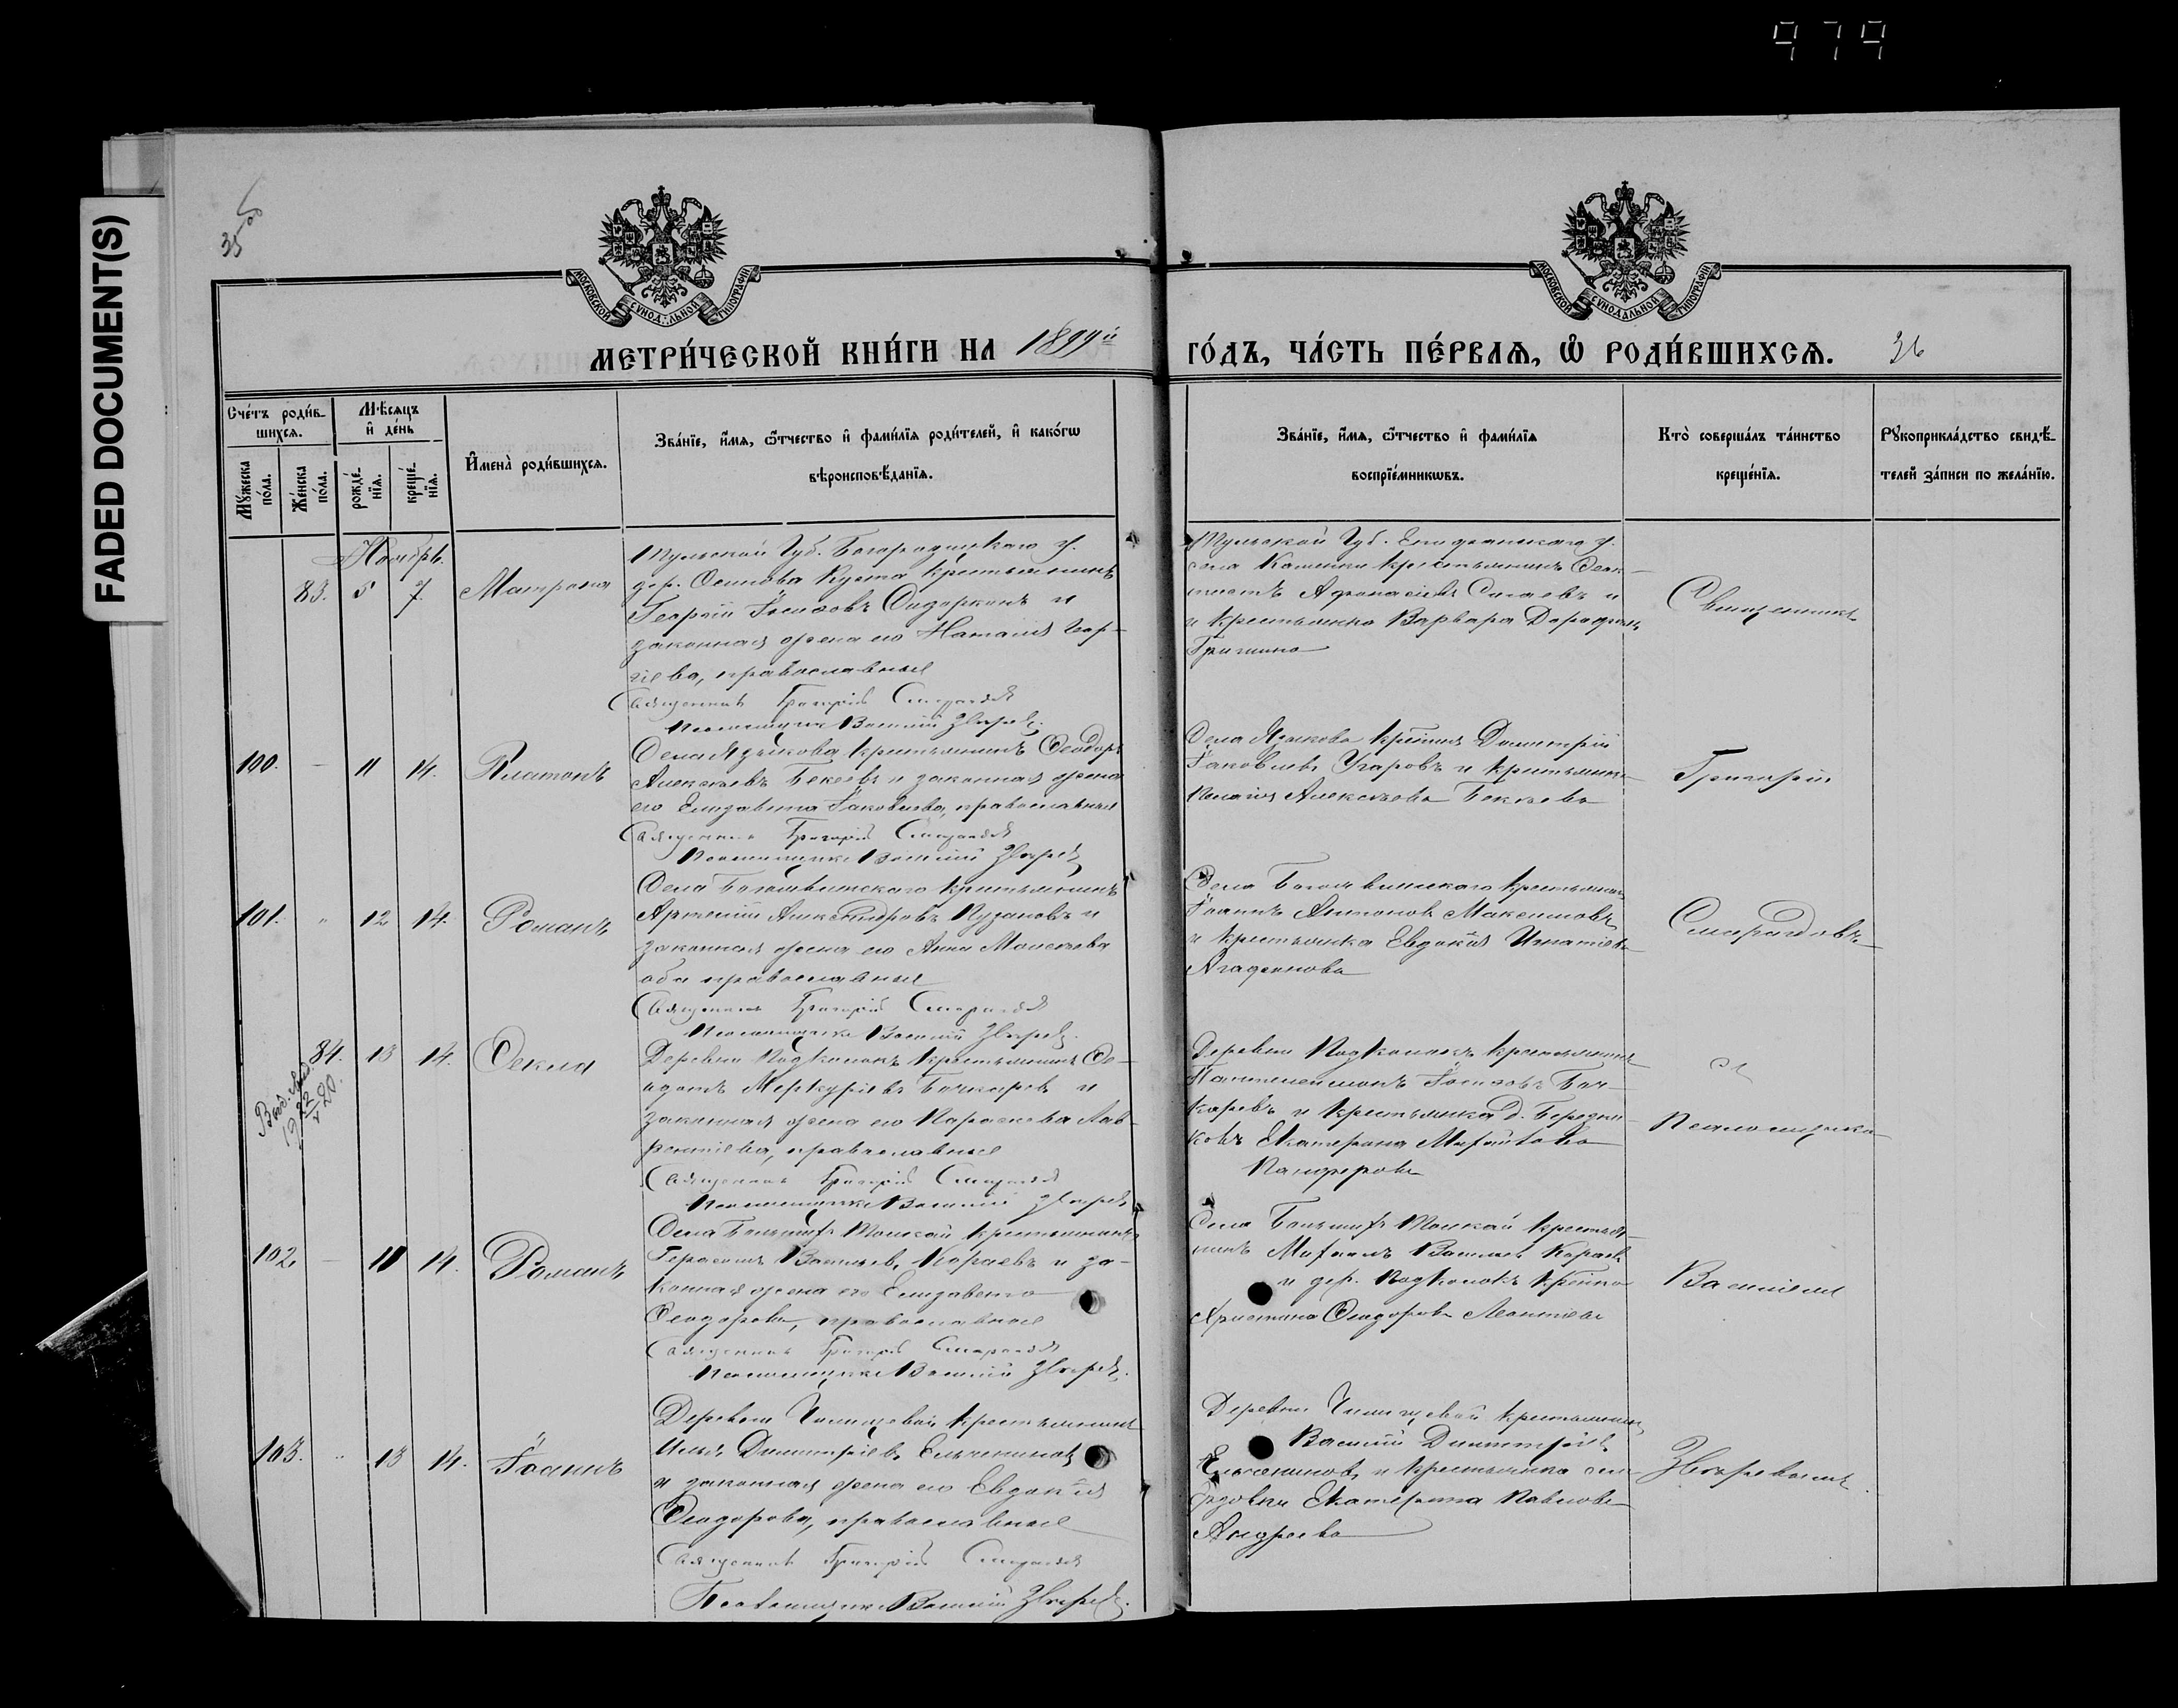 979
FADED DOCUMENT(S)
35 об
МОСКОВСКОЙ СѴНОДАЛЬНОЙ ТИПОГРАФІИ
МОСКОВСКОЙ СѴНОДАЛЬНОЙ ТИПОГРАФІИ
МЕТРИ́ЧЕСКОЙ КНИ́ГИ НА 1899й ГО́ДЪ, ЧА́СТЬ ПЕ́РВАѦ, Ѽ РОДИ́ВШИХСѦ. 36
Сче́тъ роди́в-
шихсѧ.
Мꙋ́жеска по́ла.
Же́нска по́ла.
Мѣ́сѧцъ
и҆ де́нь
рожде́-
нїѧ.
креще́-
нїѧ.
И҆мена̀ роди́вшихсѧ.
Зва́нїе, и҆́мѧ, ѻ҆́тчество и҆ фами́лїѧ роди́телей, и҆ како́гѡ
вѣроисповѣ́данїѧ.
Зва́нїе, и҆́мѧ, ѻ҆́тчество и҆ фами́лїѧ
воспрїе́мникѡвъ.
Кто̀ соверша́лъ та́инство
креще́нїѧ.
Рꙋкоприкла́дство свидѣ́-
телей за́писи по жела́нїю.
Ноябрь.
83. 5 7. Матрона
Тульской Губ. Богородицкаго у.
дер. Осинова Куста крестьянинъ
Георгій Іосифовъ Сидоркинъ и
законная жена его Наталія Геор-
гіева, православные
Священникъ Григорій Смарагдовъ
Псаломщикъ Василій Звѣревъ.
Тульской Губ. Епифанскаго у.
села Каменки крестьянинъ Феок-
тистъ Афанасіевъ и
и крестьянка Варвара
Гришина
Священникъ
100. — 11 14. Платонъ
Села Языкова крестьянинъ Феодоръ
Алексѣевъ Бекѣевъ и законная жена
его Елизавета Іаковлева, православные
Священникъ Григорій Смарагдовъ
Псаломщикъ Василій Звѣревъ
Села Языкова кр-нинъ Димитрій
Іаковлевъ Угаровъ и крестьянка
Пелагія Алексѣева Бекѣева
Григорій
101. " 12 14. Романъ
Села крестьянинъ
Артемій Александровъ и
законная жена его Анна Моисеева
оба православные
Священникъ Григорій Смарагдовъ
Псаломщикъ Василій Звѣревъ.
Села крестьянинъ
Іоаннъ Антоновъ Максимовъ
и крестьянка Евдокія Игнатіева
Агафонова
Смарагдовъ
84. 13 14. Фекла
1922
Деревни Подкопокъ крестьянинъ Фе-
одотъ Меркуріевъ Бочкаревъ и
законная жена его Параскева Лав-
рентіева, православные
Священникъ Григорій Смарагдовъ
Псаломщикъ Василій Звѣревъ
Деревни Подкопокъ крестьянинъ
Пантелеимонъ Іосифовъ Боч-
каревъ и крестьянка д. Бередни-
ковъ Екатерина Михайлова
Панферова
съ
Псаломщикомъ
102. — 11 14. Романъ
Села крестьянинъ
Герасимъ Васильевъ Караевъ и за-
конная жена его Елизавета
Феодорова, православные
Священникъ Григорій Смарагдовъ
Псаломщикъ Василій Звѣревъ.
Села крестья-
нинъ Михаилъ Васильевъ Караевъ
и дер. Подкопокъ кр-нка
Христина Феодорова Леонтіева
Василіемъ
103. " 13 14. Іоаннъ
Деревни крестьянинъ
Илья Димитріевъ Ельчениновъ
и законная жена его Евдокія
Феодорова, православные
Священникъ Григорій Смарагдовъ
Псаломщикъ Василій Звѣревъ.
Деревни крестьянинъ
Василій Димитріевъ
Ельчениновъ и крестьянка
Екатерина Павлова
Андреева
Звѣревымъ.